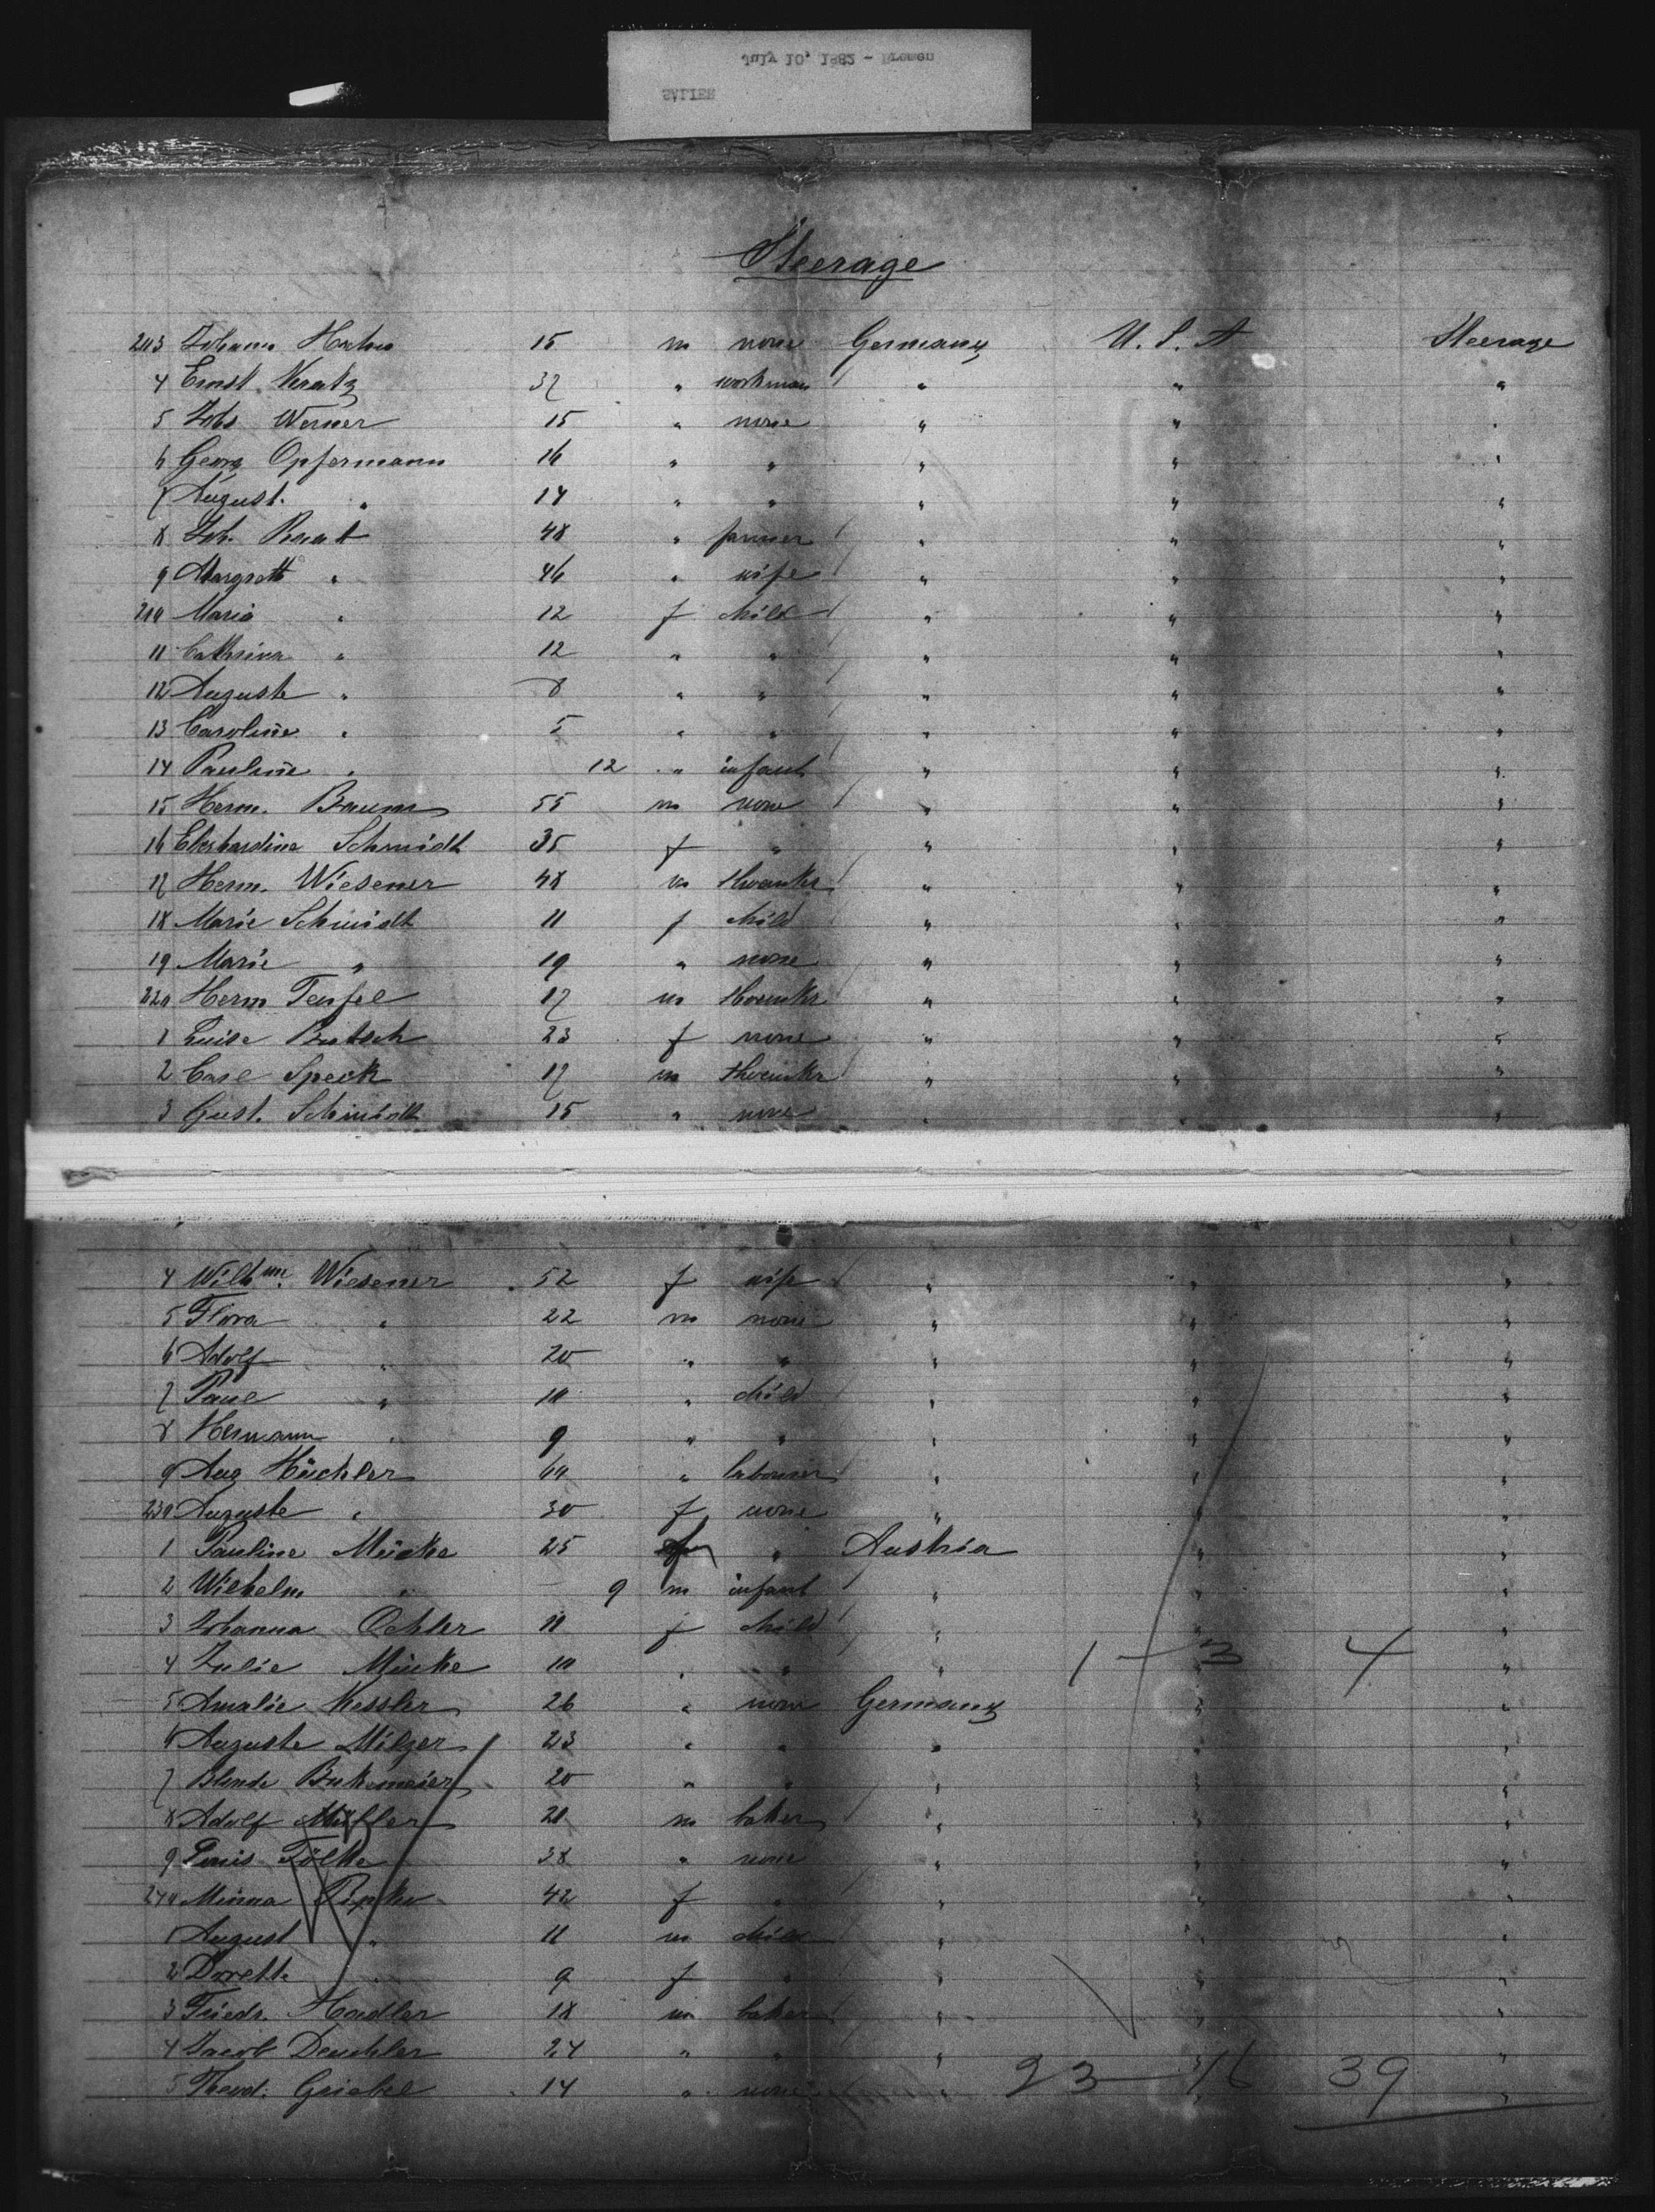 July 10, 1882 - Bremen
SALIER
Steerage
203 Johann Hahn 15 m none Germany U. S. A Steerage
4 Ernst Kratz 37 " workman " " "
5 Johs Werner 15 " none " " "
6 Georg Opfermann 16 " " " " "
7 August " 14 " " " " "
8 Joh. 48 " farmer " " "
9 Margreth " 46 " wife " " "
210 Maria " 12 f child " " "
11 Cathrina " 12 " " " " "
12 Auguste " 8 " " " " "
13 Caroline " 5 " " " " "
14 Pauline " 12 " infant " " "
15 Herm. Baum 55 m none " " "
16 Eberhardine Schmidt 35 f " " " "
17 Herm. Wiesener 48 m " " "
18 Marie Schmidt 11 f child " " "
19 Marie " 19 " none " " "
220 Herm Teufel 17 m " " "
1 Luise 23 f none " " "
2 Carl Speck 17 m " " "
3 Gust. Schmidt 15 " none " " "
4 Wilhmn. Wiesener 52 f wife " " "
5 Flora " 22 m none " " "
6 Adolf " 20 " " " " "
7 Paul " 10 " child " " "
8 Hermann " 9 " " " " "
9 Aug Hüchler 60 " labourer " " "
230 Auguste " 30 f none " " "
1 Pauline Mücke 25 " Austria " "
2 Wilhelm " 9 m infant " " "
3 Johanna Oehler 11 f child " " "
4 Julie Mücke 10 " " " 1 - 3 4 "
5 Amalie Kessler 26 " none Germany " "
6 Auguste Milzer 23 " " " " "
7 20 " " " " "
8 Adolf Müller 20 m baker " " "
9 Louis Fölke 38 " none " " "
240 Minna 42 f " " " "
1 August " 11 m child " " "
2 Dorette " 9 f " " " "
3 Friedr. Haedler 18 m baker " " "
4 Jacob Deuchler 24 " " " " "
5 Theod. Griebel 14 " none " 23 - 16 39 "